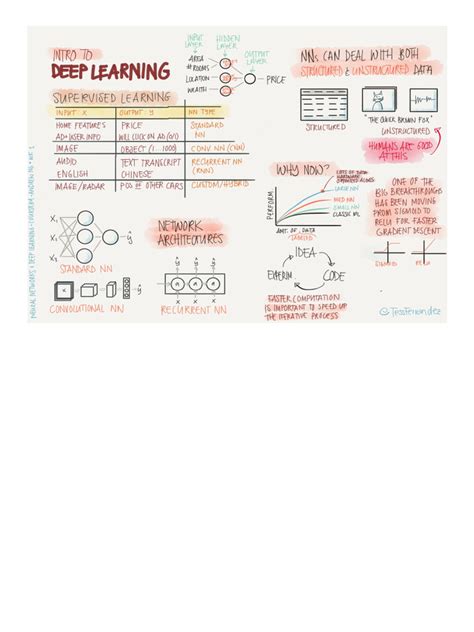 INTRO TO
DEEP LEARNING
INPUT LAYER
HIDDEN LAYER
OUTPUT LAYER
AREA
# ROOMS
LOCATION
WEALTH
PRICE
NNs CAN DEAL WITH BOTH
STRUCTURED & UNSTRUCTURED DATA
STRUCTURED
"THE QUICK BROWN FOX"
UNSTRUCTURED
HUMANS ARE GOOD
AT THIS
SUPERVISED LEARNING
INPUT X OUTPUT: Y NN TYPE
HOME FEATURES PRICE STANDARD
AD+USER INFO CLICK ON AD (0/1) NN
IMAGE OBJECT (1...1000) CONV. NN (CNN)
AUDIO TEXT TRANSCRIPT RECURRENT NN
ENGLISH CHINESE (RNN)
IMAGE/RADAR POS OF OTHER CARS CUSTOM/HYBRID
X1
X2
X3
ŷ
STANDARD NN
NETWORK
ARCHITECTURES
CONVOLUTIONAL NN
ŷ ŷ ŷ
X X X
RECURRENT NN
WHY NOW?
PERFORM.
LARGE NN
MED NN
SMALL NN
CLASSIC ML
AMT. OF DATA
LABELED
IDEA
EXPERIM
CODE
FASTER COMPUTATION
IS IMPORTANT TO SPEED UP
THE ITERATIVE PROCESS
ONE OF THE
BIG BREAKTHROUGHS
HAS BEEN MOVING
FROM SIGMOID TO
RELU FOR FASTER
GRADIENT DESCENT
SIGMOID
RELU
@TessFerrandez